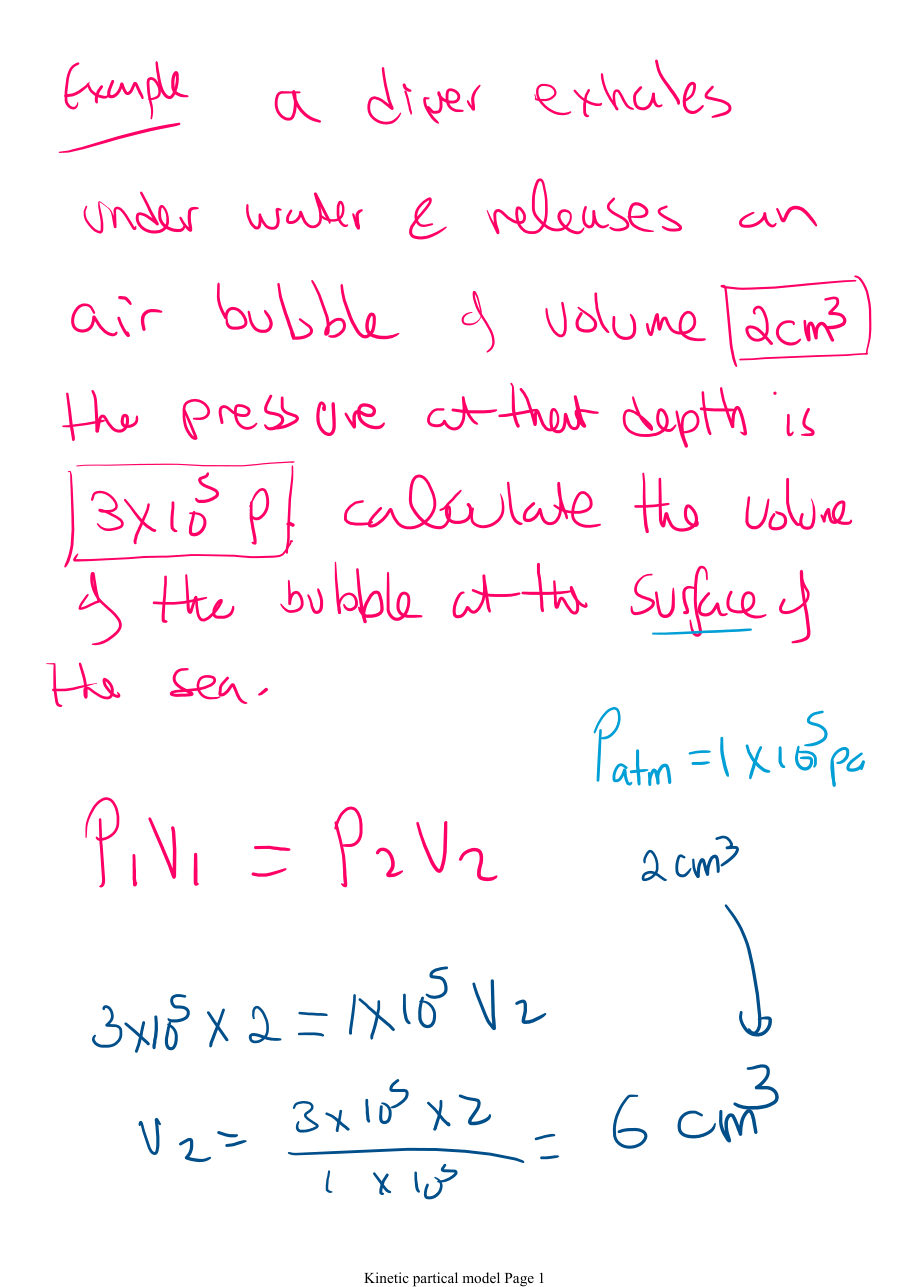 Example a diver exhales
under water & releases an
air bubble of volume 2cm³
the pressure at that depth is
3×10⁵ P. calculate the volume
of the bubble at the surface of
the sea.
Patm = 1×10⁵ pa
P₁V₁ = P₂V₂
2cm³
3×10⁵ × 2 = 1×10⁵ V₂
V₂ = 3×10⁵ × 2 / 1 × 10⁵ = 6 cm³
Kinetic partical model Page 1